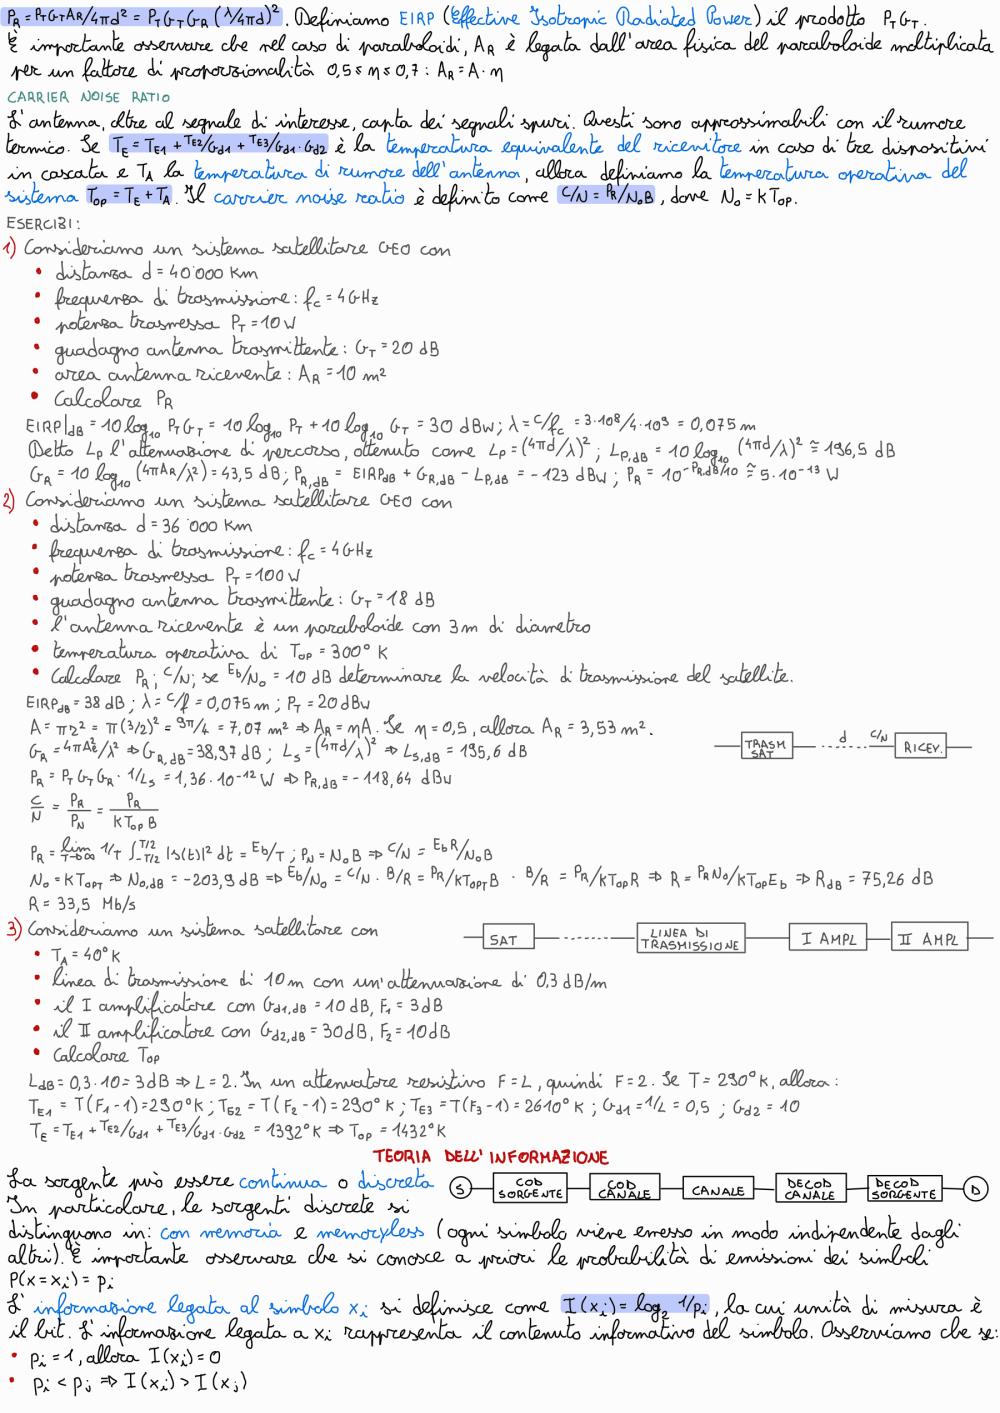 P_R = P_T G_T A_R/4πd² = P_T G_T G_R (λ/4πd)². Definiamo EIRP (Effective Isotropic Radiated Power) il prodotto P_T G_T.
È importante osservare che nel caso di paraboloidi, A_R è legata dall'area fisica del paraboloide moltiplicata
per un fattore di proporzionalità 0,5 ≤ η ≤ 0,7 : A_R = A·η
CARRIER NOISE RATIO
L'antenna, oltre al segnale di interesse, capta dei segnali spuri. Questi sono approssimabili con il rumore
termico. Se T_E = T_E1 + T_E2/G_d1 + T_E3/G_d1·G_d2 è la temperatura equivalente del ricevitore in caso di tre dispositivi
in cascata e T_A la temperatura di rumore dell'antenna, allora definiamo la temperatura operativa del
sistema T_OP = T_E + T_A. Il carrier noise ratio è definito come C/N = P_R/N_0B, dove N_0 = kT_OP.
ESERCIZI:
1) Consideriamo un sistema satellitare GEO con
• distanza d = 40'000 Km
• frequenza di trasmissione: f_c = 4GHz
• potenza trasmessa P_T = 10W
• guadagno antenna trasmittente: G_T = 20 dB
• area antenna ricevente: A_R = 10 m²
• Calcolare P_R
EIRP|_dB = 10 log_10 P_T G_T = 10 log_10 P_T + 10 log_10 G_T = 30 dBW; λ = c/f_c = 3·10⁸/4·10⁹ = 0,075 m
Detto L_P l'attenuazione di percorso, ottenuto come L_P = (4πd/λ)²; L_P,dB = 10 log_10 (4πd/λ)² ≅ 196,5 dB
G_R = 10 log_10 (4πA_R/λ²) = 43,5 dB; P_R,dB = EIRP_dB + G_R,dB - L_P,dB = -123 dBW; P_R = 10^-P_R,dB/10 ≅ 5·10⁻¹³ W
2) Consideriamo un sistema satellitare GEO con
• distanza d = 36'000 Km
• frequenza di trasmissione: f_c = 4GHz
• potenza trasmessa P_T = 100W
• guadagno antenna trasmittente: G_T = 18 dB
• l'antenna ricevente è un paraboloide con 3m di diametro
• temperatura operativa di T_OP = 300° K
• Calcolare P_R; C/N; se E_b/N_0 = 10 dB determinare la velocità di trasmissione del satellite.
EIRP_dB = 38 dB; λ = c/f = 0,075 m; P_T = 20 dBW
A = πr² = π(3/2)² = 9π/4 = 7,07 m² ⇒ A_R = ηA. Se η = 0,5, allora A_R = 3,53 m².
TRASM SAT d C/N RICEV.
G_R = 4πA_e²/λ² ⇒ G_R,dB = 38,97 dB; L_s = (4πd/λ)² ⇒ L_s,dB = 195,6 dB
P_R = P_T G_T G_R · 1/L_s = 1,36·10⁻¹² W ⇒ P_R,dB = -118,64 dBW
C/N = P_R/P_N = P_R/kT_OP B
P_R = lim_T→∞ 1/T ∫_-T/2^T/2 |s(t)|² dt = E_b/T; P_N = N_0B ⇒ C/N = E_bR/N_0B
N_0 = kT_OPT ⇒ N_0,dB = -203,9 dB ⇒ E_b/N_0 = C/N · B/R = P_R/kT_OPT B · B/R = P_R/kT_OP R ⇒ R = P_R N_0/kT_OP E_b ⇒ R_dB = 75,26 dB
R = 33,5 Mb/s
3) Consideriamo un sistema satellitare con
SAT LINEA DI TRASMISSIONE I AMPL II AMPL
• T_A = 40° K
• linea di trasmissione di 10 m con un'attenuazione di 0,3 dB/m
• il I amplificatore con G_d1,dB = 10 dB, F_1 = 3dB
• il II amplificatore con G_d2,dB = 30dB, F_2 = 10dB
• Calcolare T_OP
L_dB = 0,3·10 = 3dB ⇒ L = 2. In un attenuatore resistivo F = L, quindi F = 2. Se T = 290° K, allora:
T_E1 = T(F_1-1) = 290° K; T_E2 = T(F_2-1) = 290° K; T_E3 = T(F_3-1) = 2610° K; G_d1 = 1/L = 0,5; G_d2 = 10
T_E = T_E1 + T_E2/G_d1 + T_E3/G_d1·G_d2 = 1392° K ⇒ T_OP = 1432° K
TEORIA DELL'INFORMAZIONE
La sorgente può essere continua o discreta
S COD SORGENTE COD CANALE CANALE DECOD CANALE DECOD SORGENTE D
In particolare, le sorgenti discrete si
distinguono in: con memoria e memoryless (ogni simbolo viene emesso in modo indipendente dagli
altri). È importante osservare che si conosce a priori le probabilità di emissioni dei simboli
P(x = x_i) = p_i
L'informazione legata al simbolo x_i si definisce come I(x_i) = log_2 1/p_i, la cui unità di misura è
il bit. L'informazione legata a x_i rappresenta il contenuto informativo del simbolo. Osserviamo che se:
• p_i = 1, allora I(x_i) = 0
• p_i < p_j ⇒ I(x_i) > I(x_j)